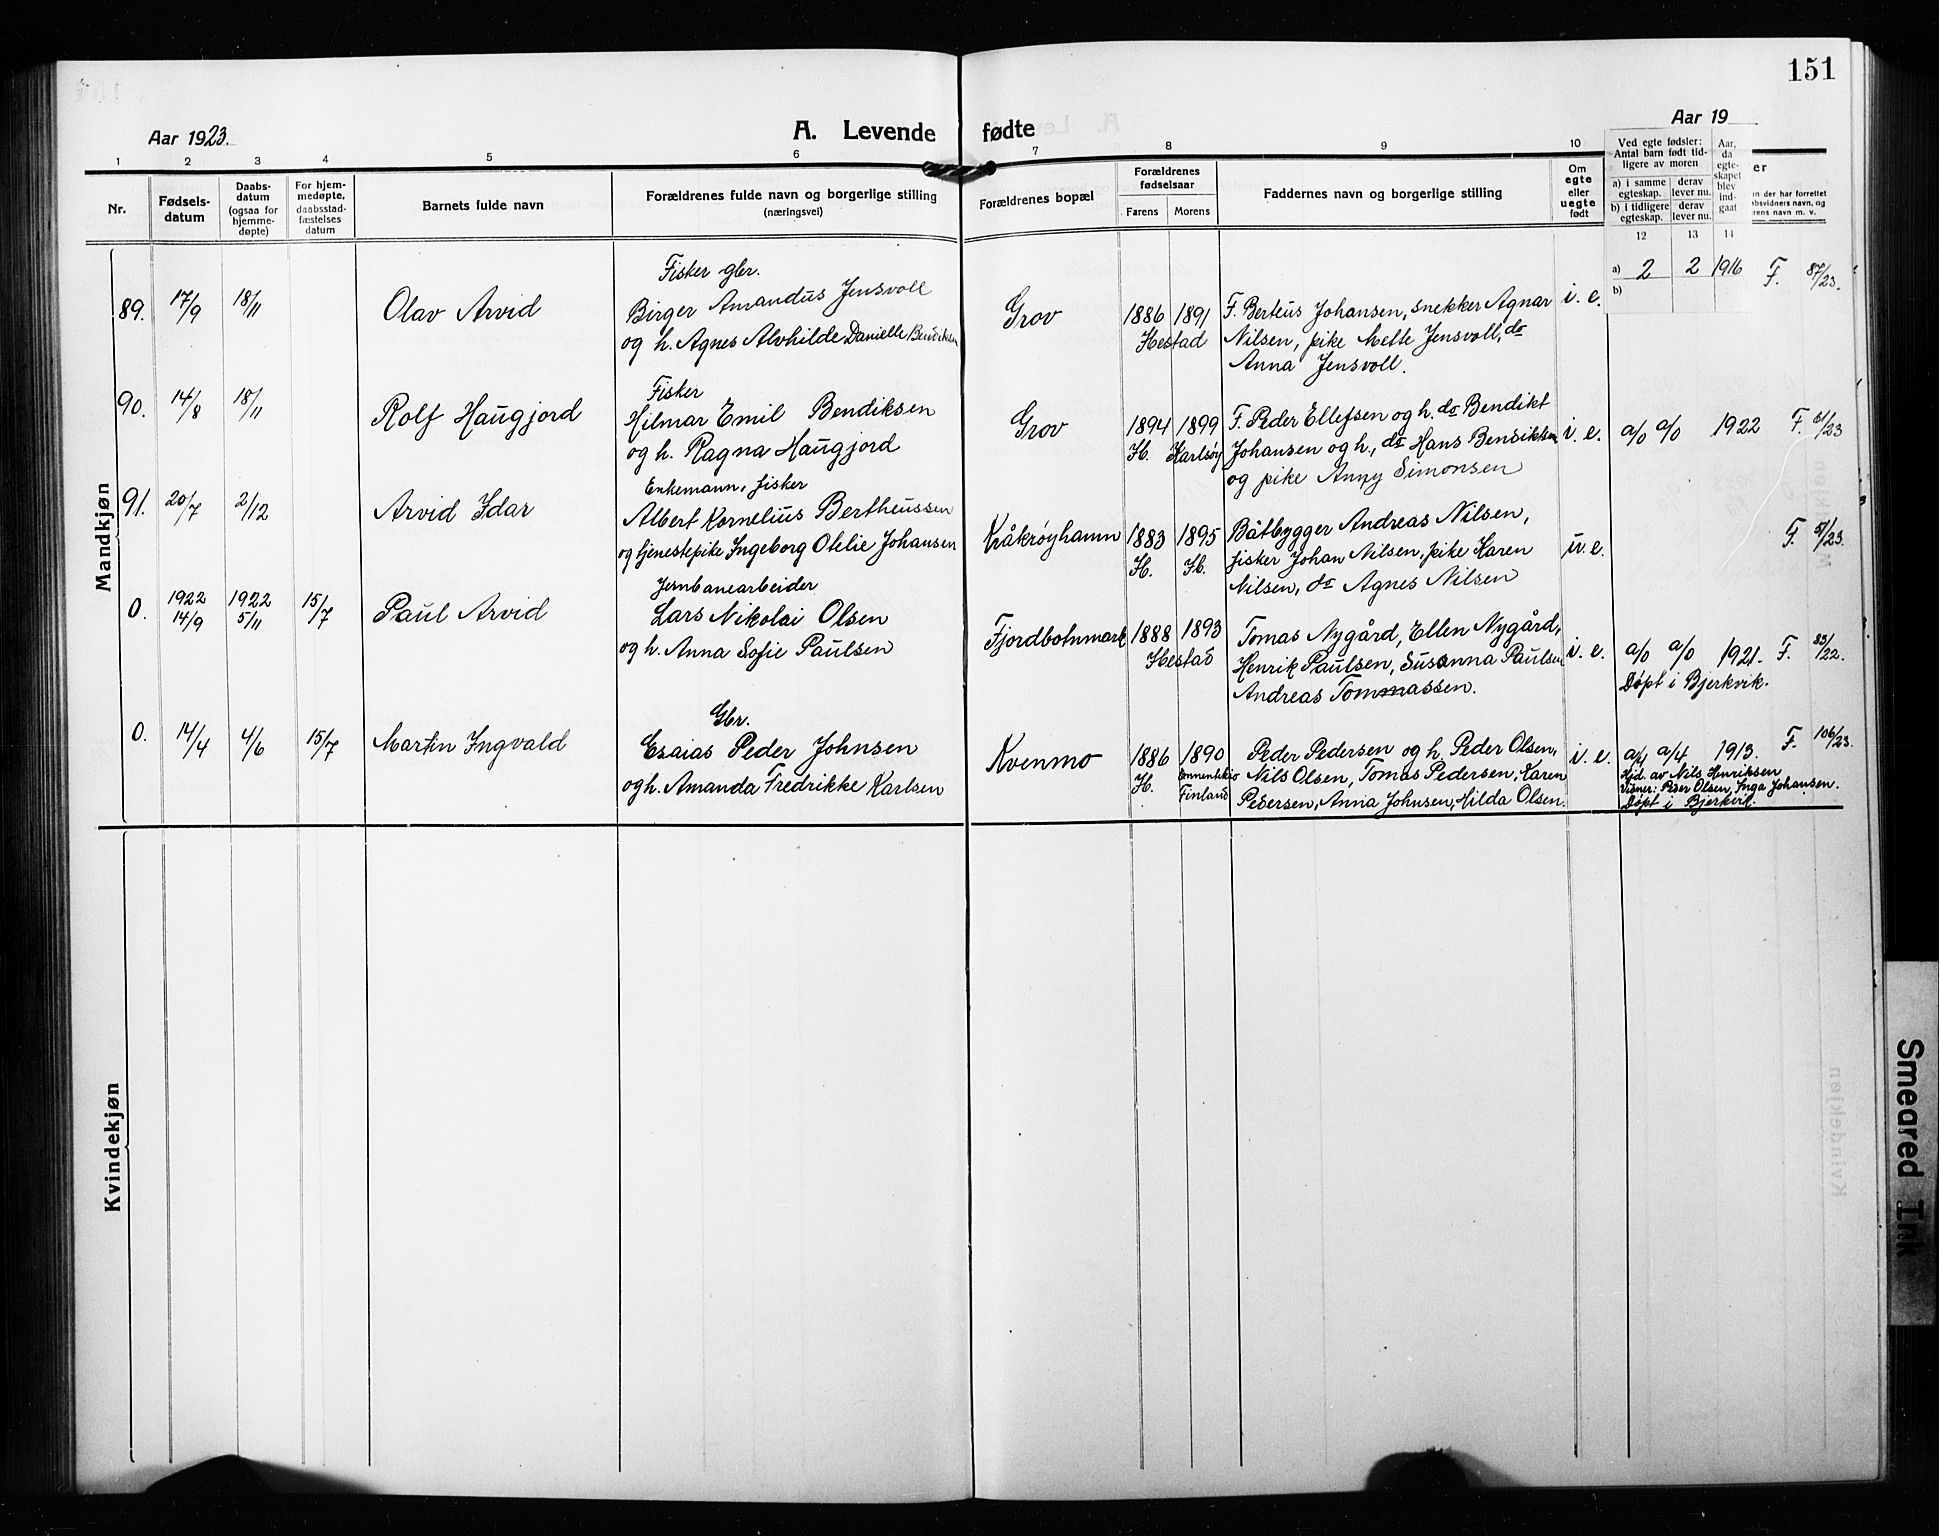 151
Aar 1923.
A. Levende fødte
Aar 19
1 2 3 4 5 6 7 8 9 10
Nr.
Fødsels-
datum
Daabs-
datum
(ogsaa for
hjemme-
døpte)
For hjem-
medøpte,
daabsstad-
fæstelses
datum
Barnets fulde navn
Forældrenes fulde navn og borgerlige stilling
(næringsvei)
Forældrenes bopæl
Forældrenes
fødselsaar
Farens Morens
Faddernes navn og borgerlige stilling
Om
egte
eller
uegte
født
Ved egte fødsler:
Antal barn født tid-
ligere av moren
a) i samme
egteskap.
derav
lever nu.
b) i tidligere
egteskap.
derav
lever nu.
Aar,
da
egte-
skapet
blev
ind-
gaat
12 13 14
er
n der har forrettet
absvidners navn, og
rens navn m. v.
Mandkjøn
Fisker gbr.
89. 17/9 18/11 Olav Arvid Birger Amandus Jensvoll
og h. Agnes Alvhilde Danielle Bendiksen
Grov 1886 1891
Hestad
F. Berteus Johansen, snekker Agnar
Nilsen, pike Mette Jensvoll, do
Anna Jensvoll.
i. e. a) 2 2 1916 F. 87/23.
b)
Fisker
90. 14/8 18/11 Rolf Haugjord Hilmar Emil Bendiksen
og h. Ragna Haugjord
Grov 1894 1899
H. Karlsøy
F. Peder Ellefsen og h. do Bendikt
Johansen og h., do Hans Bendiksen
og pike Anny Simonsen
i. e. a/0 a/0 1922 F. /23
Enkemann, fisker
91. 20/7 2/12 Arvid Idar Albert Kornelius Bertheussen
og tjenestepike Ingeborg Otelie Johansen
Kråkrøyhamn 1883 1895
H. H.
Båtbygger Andreas Nilsen,
fisker Johan Nilsen, pike Karen
Nilsen, do Agnes Nilsen
u. e. F. /23.
Jernbanearbeider
0. 1922 14/9 1922 5/11 15/7 Paul Arvid Lars Nikolai Olsen
og h. Anna Sofie Paulsen
Fjordbotnmark 1888 1893
Hestad
Tomas Nygård, Ellen Nygård,
Henrik Paulsen, Susanna Paulsen
Andreas Tommassen.
i. e. a/0 a/0 1921. F. 83/22.
Døpt i Bjerkvik.
Gbr.
0. 14/4 4/6 15/7 Martin Ingvald Esaias Peder Johnsen
og h. Amanda Fredrikke Karlsen
Kvenmo 1886 1890
H. Finland
Peder Pedersen og h. Peder Olsen,
Nils Olsen, Tomas Pedersen, Karen
Pedersen, Anna Johnsen, Hilda Olsen.
i. e. a/4 a/4 1913. F. 106/23.
Hjd. av Nils Henriksen
Vidner: Peder Olsen, Inga Johansen.
Døpt i Bjerkvik.
Kvindekjøn
Smeared Ink